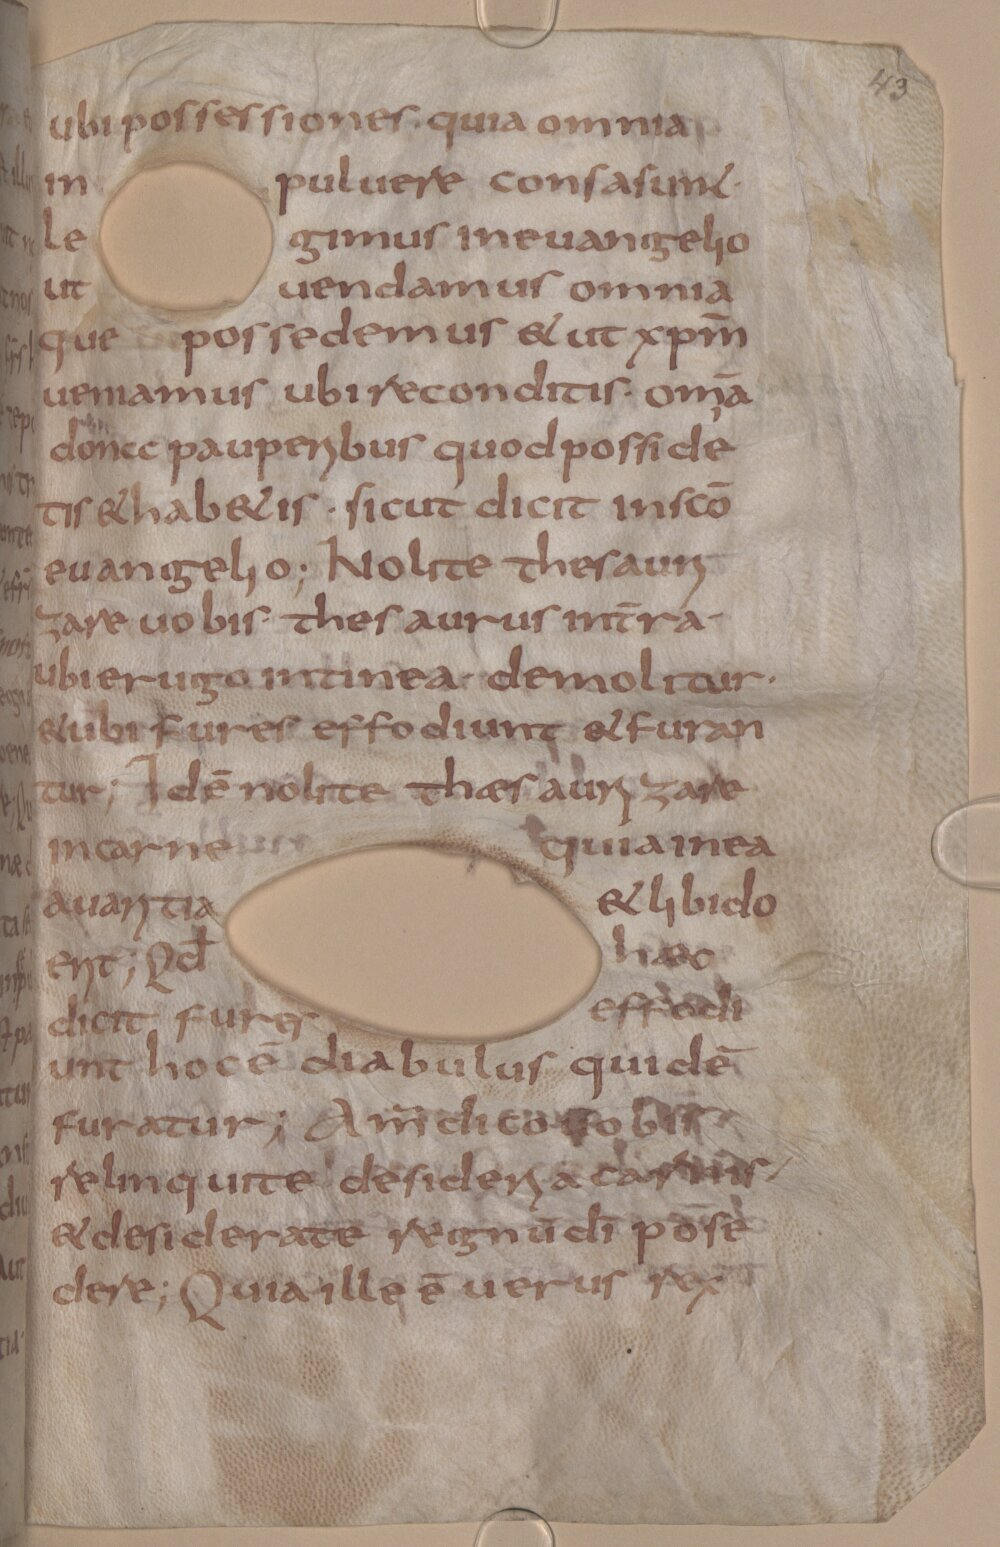 43
ubi possessiones. quia omnia
in puluere consasunt.
le gimus in euangelio
ut uendamus omnia
que possedemus & ut xp̄m
ueniamus ubi reconditis. om̄a
pauperibus quod posside
tis & hab&is. sicut dicit in sc̄o
euangelio; Nolite thesauri
zare uobis. thesaurus in t̄ra.
ubi erugo in tinea. demolitur.
& ubi fures effodiunt & furan
tur; Idē nolite thæsaurizare
in carne quia in ea
auaritia & libido
erit; Qđ haec
dicit fures effodi
unt hoc ē diabulus quidē
furatur; Am̄ dico uobis.
relinquite desideria carnis.
& desiderate regnū dī posse
dere; Quia ille ē uerus rex